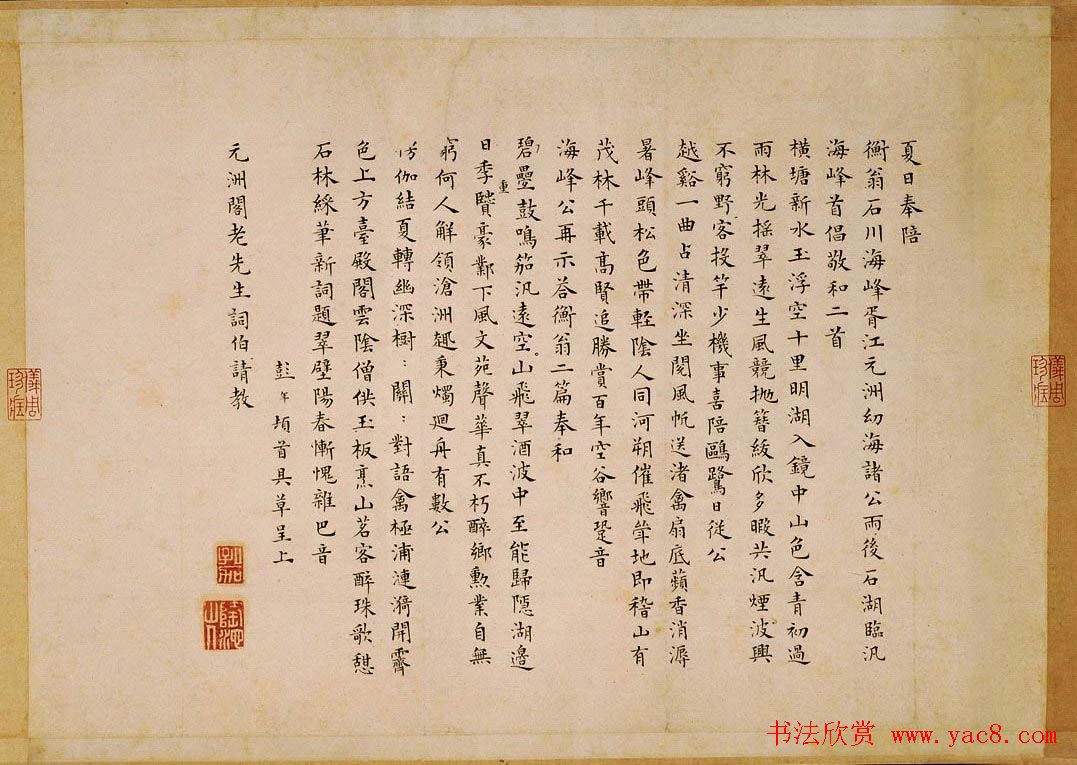 夏日奉陪
衡翁石川海峰胥江元洲幼海諸公雨後石湖臨汎
海峰首倡敬和二首
橫塘新水玉浮空十里明湖入鏡中山色含青初過
雨林光摇翠遠生風競拋簪紱欣多暇共汎煙波興
不窮野客投竿少機事喜陪鷗鷺日從公
越谿一曲占清深坐閱風帆送渚禽扇底蘋香消溽
暑峰頭松色帶輕陰人同河朔催飛斝地即稽山有
茂林千載高賢追勝賞百年空谷響跫音
海峰公再示荅衡翁二篇奉和
碧疊鼓鳴笳汎遠空山飛翠酒波中至能歸隱湖邊
重
日季鷹豪鄴下風文苑聲華真不朽醉鄉勲業自無
窮何人解領滄洲趣秉燭迴舟有數公
楞伽結夏轉幽深樹關對語禽極浦漣漪開霽
色上方臺殿閣雲陰僧供玉板烹山茗客醉珠歌憩
石林綵筆新詞題翠壁陽春慚愧雜巴音
彭年頓首具草呈上
元洲閣老先生詞伯請教
儀周珍藏
儀周珍藏
書法欣賞 www.yac8.com